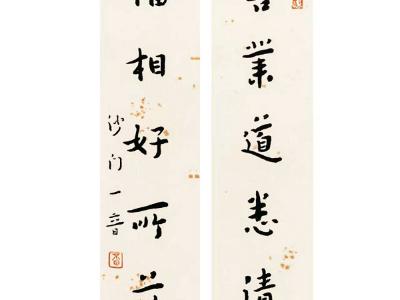 業道悉清
相好所
沙门一音